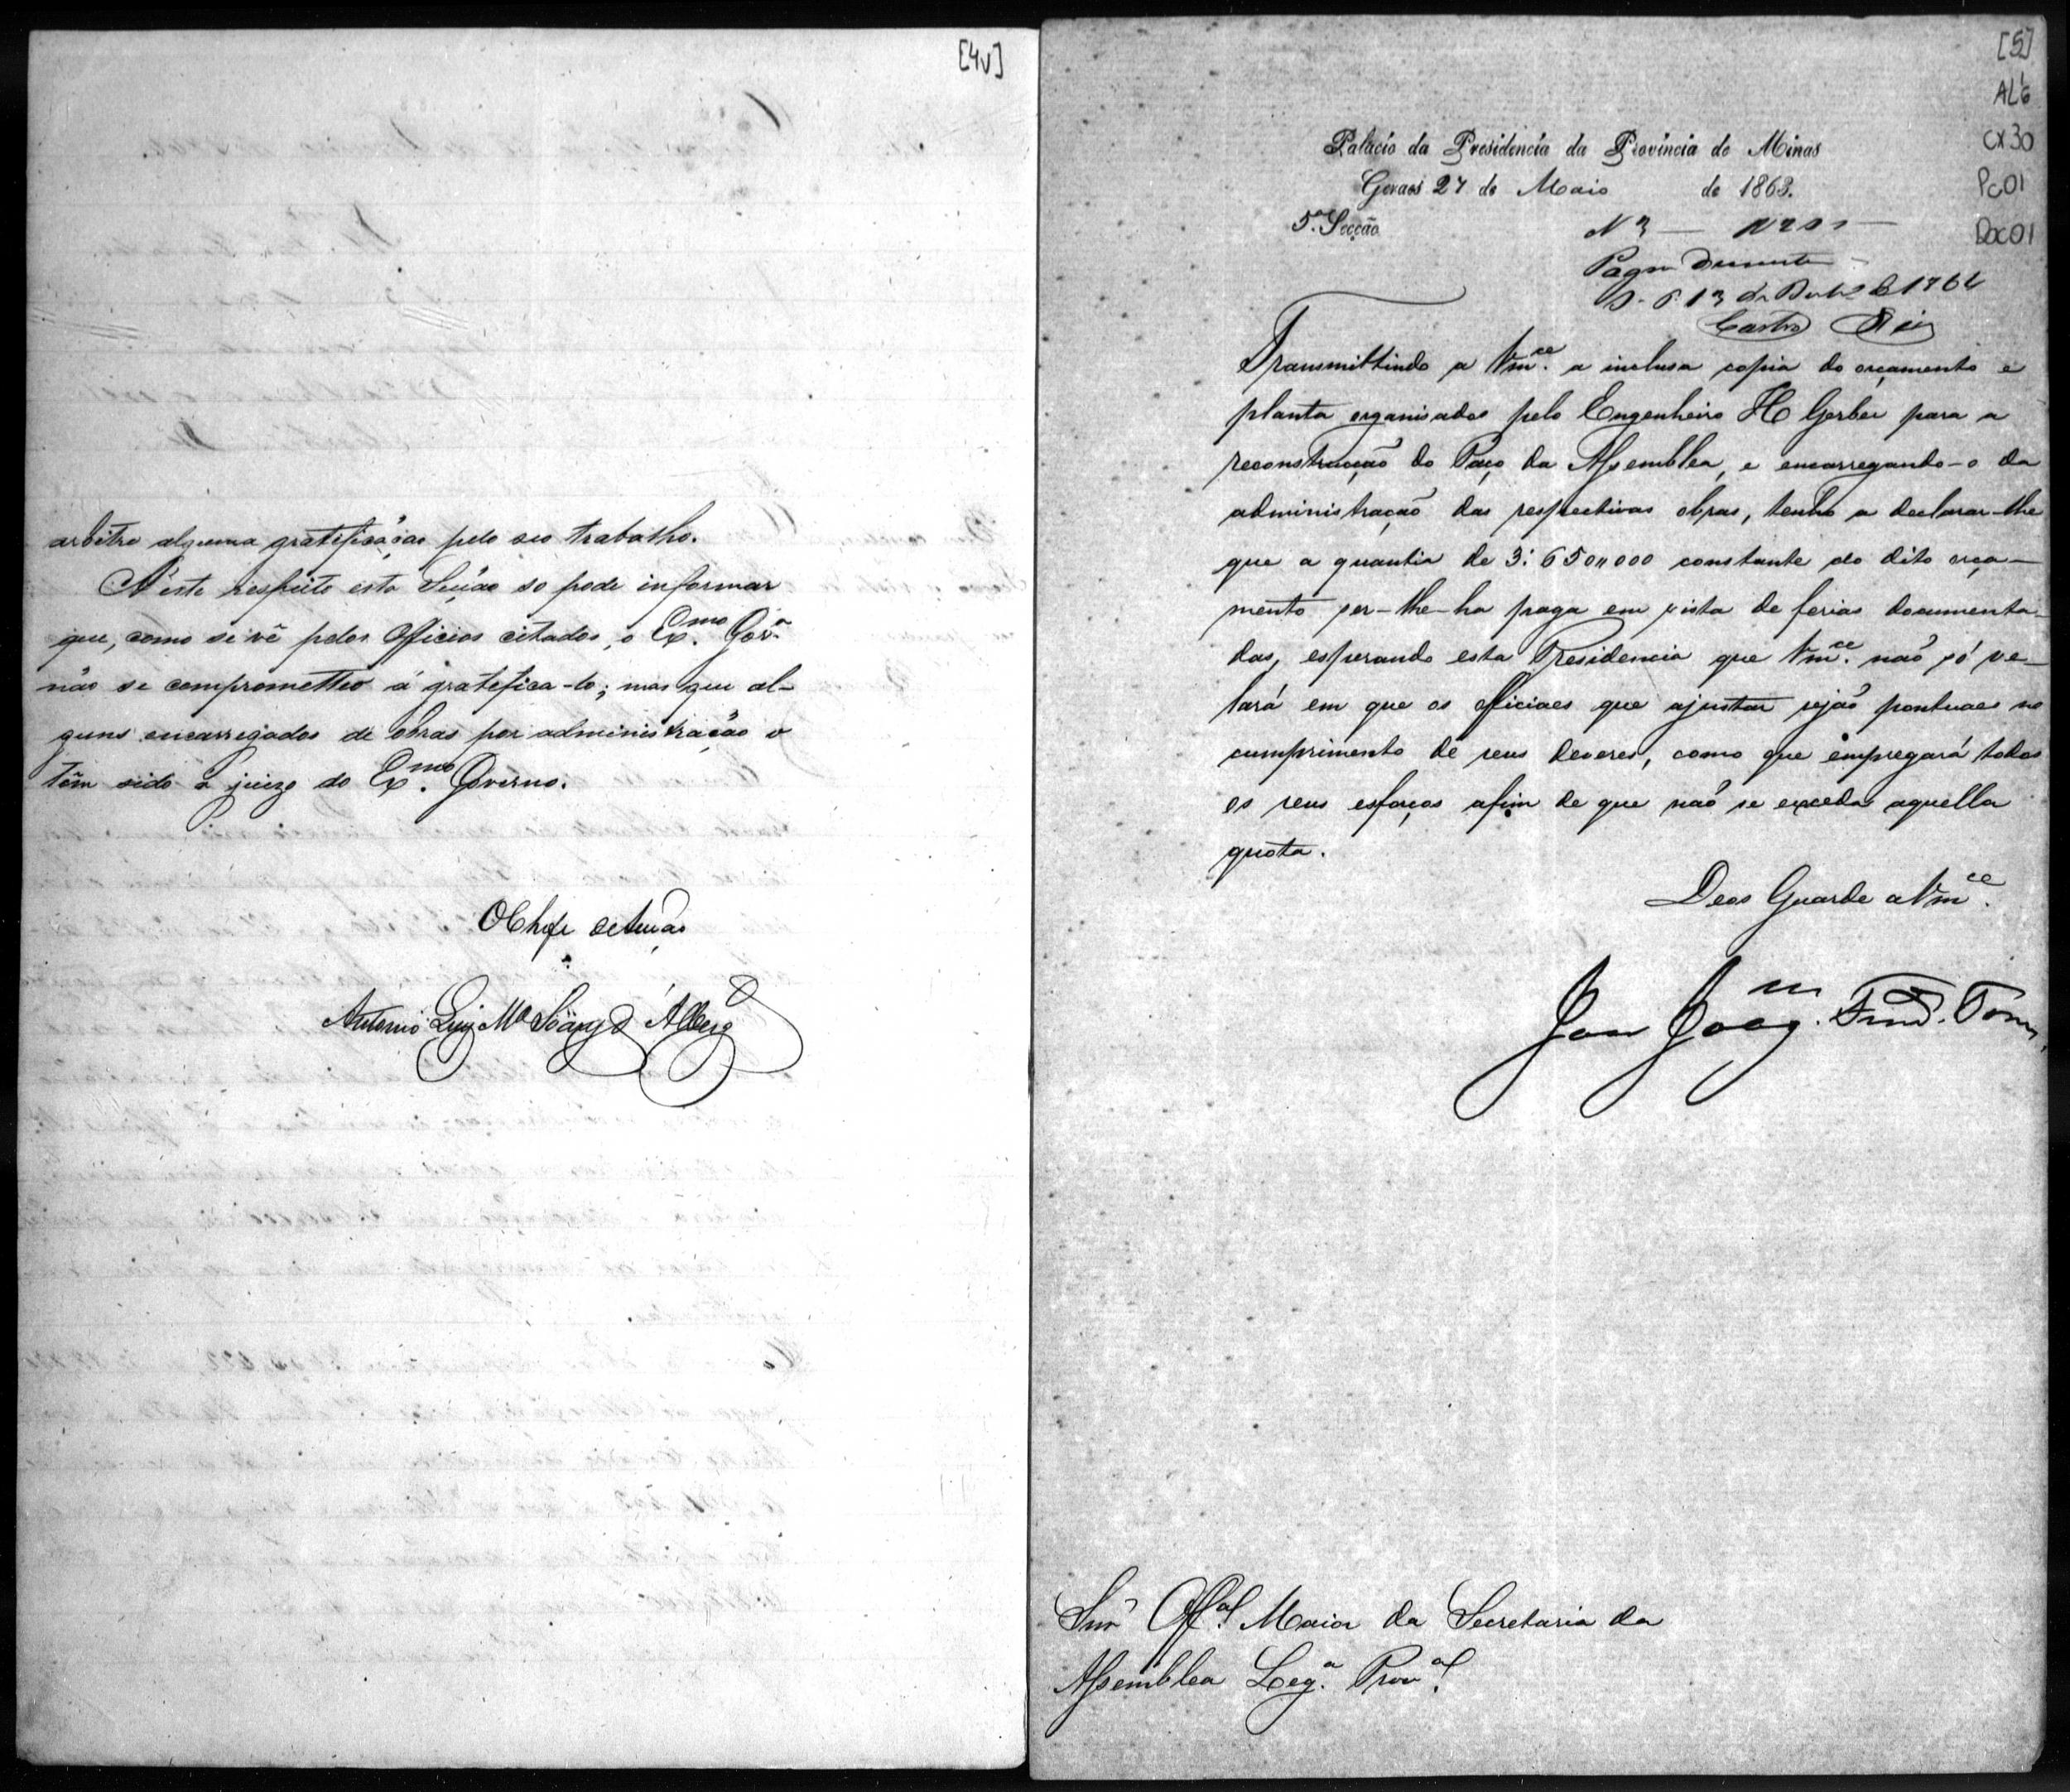 [4v]
arbitre alguma gratificação pelo seo trabalho.
A' este respeito esta Secção so pode informar
que, como se vê pelos Officios citados, o Ex.mo Gov.o
não se comprometteo á gratifica-lo; mas que al-
guns encarregados de obras por administração o
têm sido a juizo do Ex.mo Governo.
O Chefe de Secção
Antonio Luiz M.a
[5]
AL6
CX30
Pc01
Doc01
Palacio da Presidencia da Provincia de Minas
Geraes 27 de Maio de 1863.
5.a Secção
N 3 —
Pagou
13 de
Castro
Transmittindo a Vm.ce a inclusa copia do orçamento e
planta organisados pelo Engenheiro H Gerber para a
reconstrucção do Paço da Assemblea, e encarregando-o da
administração das respectivas obras, tenho a declarar-lhe
que a quantia de 3:650"000 constante do dito orça-
mento ser-lhe-ha paga em vista de ferias documenta-
das, esperando esta Presidencia que Vm.ce não só ve-
lará em que os officiaes que ajustar sejão pontuaes no
cumprimento de seus deveres, como que empregará todos
os seus esforços afim de que não se exceda aquella
quota.
Deos Guarde a Vm.ce
Joaq.m
Snr Off.al Maior da Secretaria da
Assemblea Leg.a Prov.al